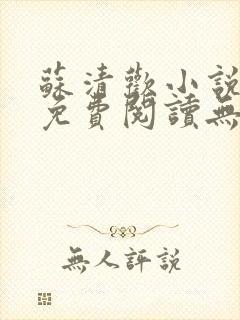 蘇清歡小說
免費閱讀無
無人評說